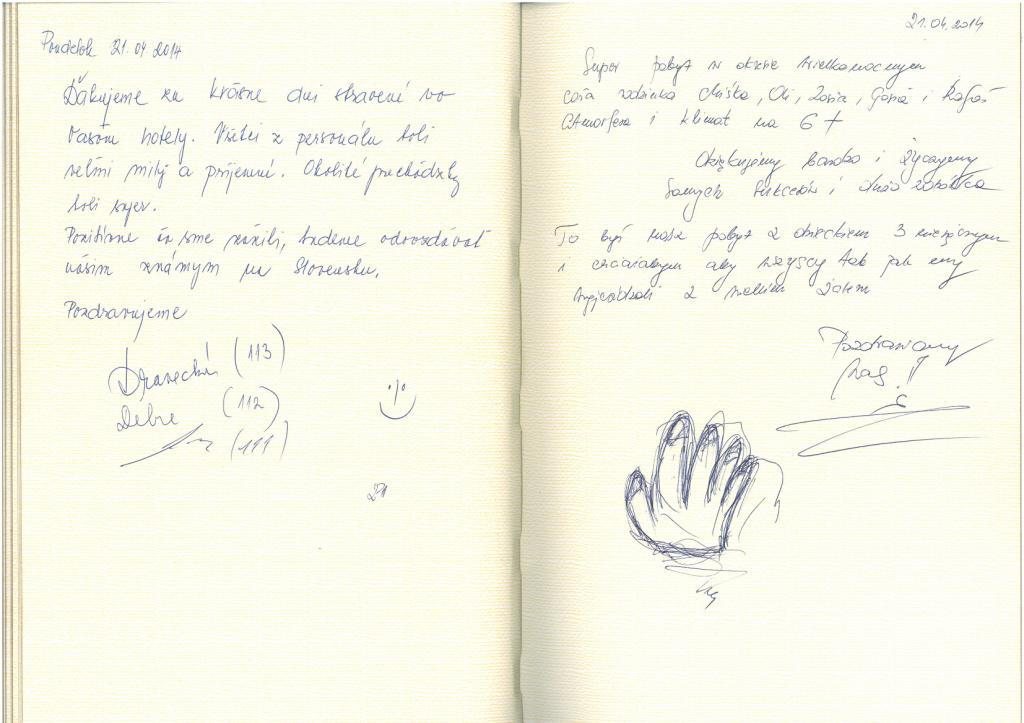 Pondelok 21.04 2014
Ďakujeme za krásne dni strávené vo
Vašom hotely. Všetci z personálu boli
veľmi milý a príjemné. Okolité prechádzky
boli super.
Pozitívne čo sme zažili, budeme odovzdávať
našim známym na Slovensku.
Pozdravujeme
(113)
(112)
(111)
21
21.04.2014
Super pobyt w okresie wielkanocnym
cała rodzinka Miśka, Oli, Zosia, Gosia i Rafał
Atmosfera i klimat na 6+
Dziękujemy bardzo i życzymy
Samych sukcesów i dużo zdrówka
To był nasz pobyt z dzieckiem 3 miesięcznym
i chcielibyśmy aby wszyscy tak jak my
wyjeżdżali z wielkim żalem
Pozdrawiamy
Was !!